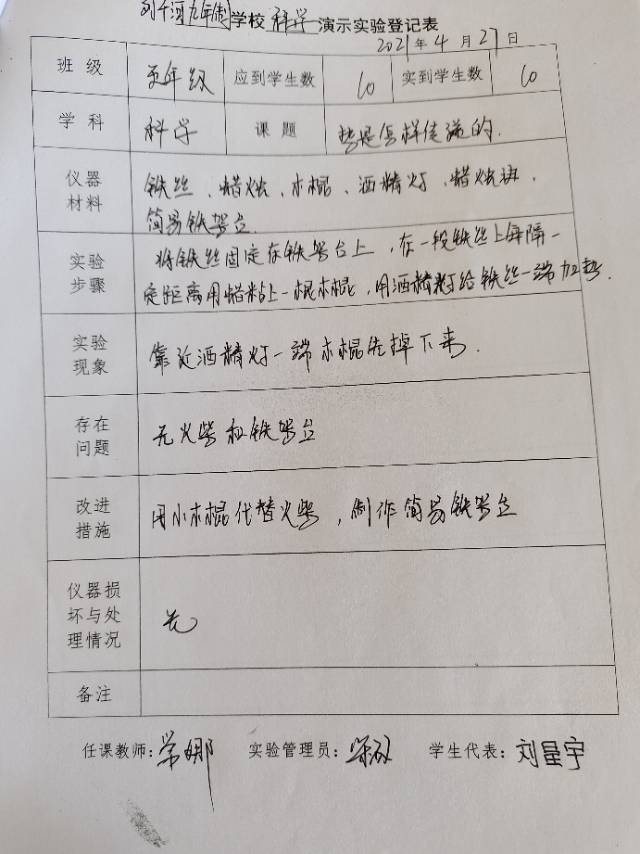 刘千河九年制学校 科学 演示实验登记表
2021年4月27日
班级 五年级 应到学生数 10 实到学生数 10
学科 科学 课题 热是怎样传递的.
仪器材料 铁丝、蜡烛、木棍、酒精灯、蜡烛油、
简易铁架台
实验步骤 将铁丝固定在铁架台上，在一段铁丝上每隔一
定距离用蜡粘上一根木棍，用酒精灯给铁丝一端加热.
实验现象 靠近酒精灯一端木棍先掉下来.
存在问题 无火柴和铁架台
改进措施 用小木棍代替火柴，制作简易铁架台
仪器损坏与处理情况 无
备注
任课教师：常娜 实验管理员： 学生代表：刘星宇